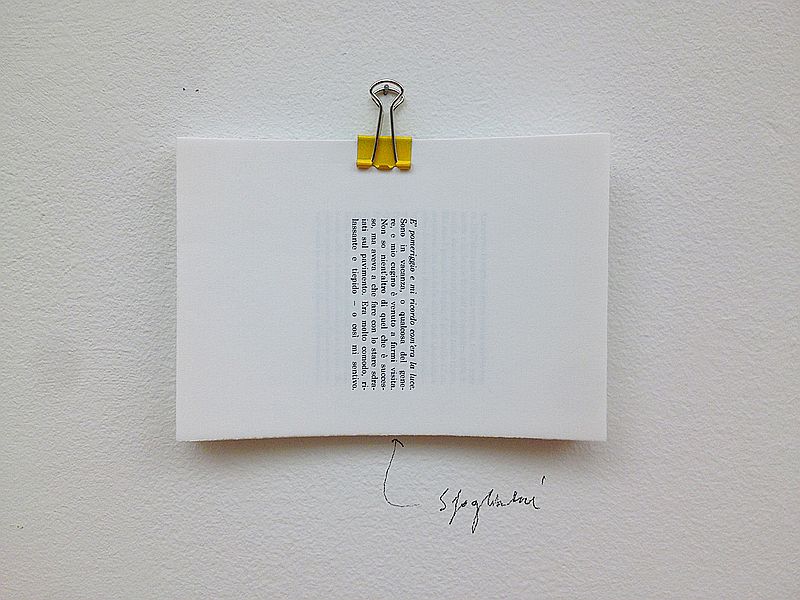 E' pomeriggio e mi ricordo com'era la luce.
Sono in vacanza, o qualcosa del gene-
re, e mio cugino è venuto a farmi visita.
Non so nient'altro di quel che è succes-
so, ma aveva a che fare con lo stare sdra-
iati sul pavimento. Era molto comodo, ri-
lassante e tiepido – o così mi sentivo.